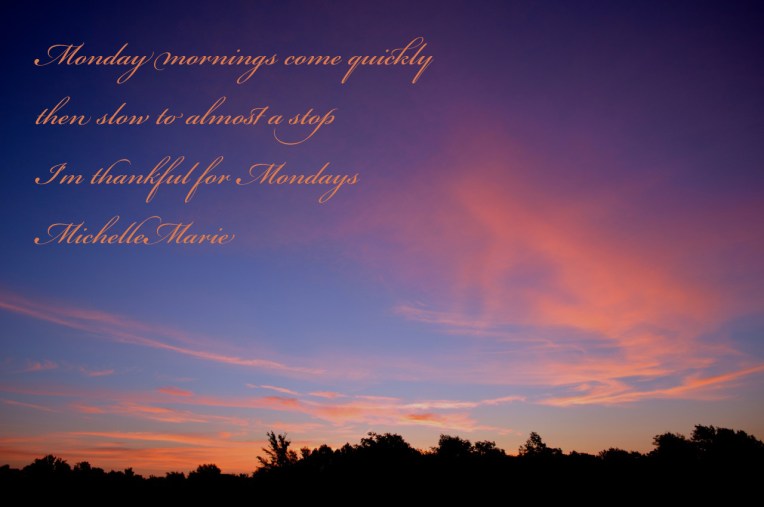 Monday mornings come quickly
then slow to almost a stop
I'm thankful for Mondays
MichelleMarie